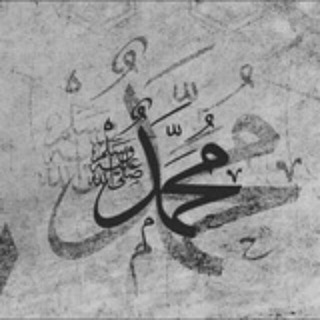 محمد
صلى الله عليه وسلم